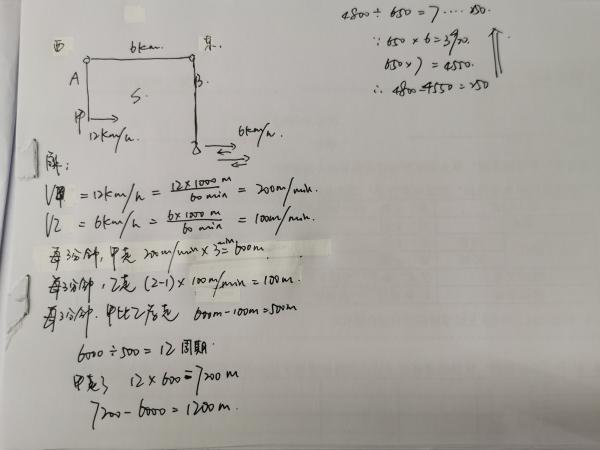 西 6km 东.
A B.
S.
甲
12km/h 6km/h.
解:
V甲 = 12km/h = 12×1000 m / 60 min = 200m/min.
V乙 = 6km/h = 6×1000 m / 60 min = 100m/min.
每3分钟, 甲走 200m/min×3min=600m.
每3分钟, 乙走 (2-1)×100m/min=100m.
每3分钟. 甲比乙多走 600m-100m=500m
6000÷500=12 周期.
甲走了 12×600=7200m
7200-6000=1200m.
4800÷650=7····250.
∵ 650×6=3900.
650×7=4550.
∴ 4800-4550=250